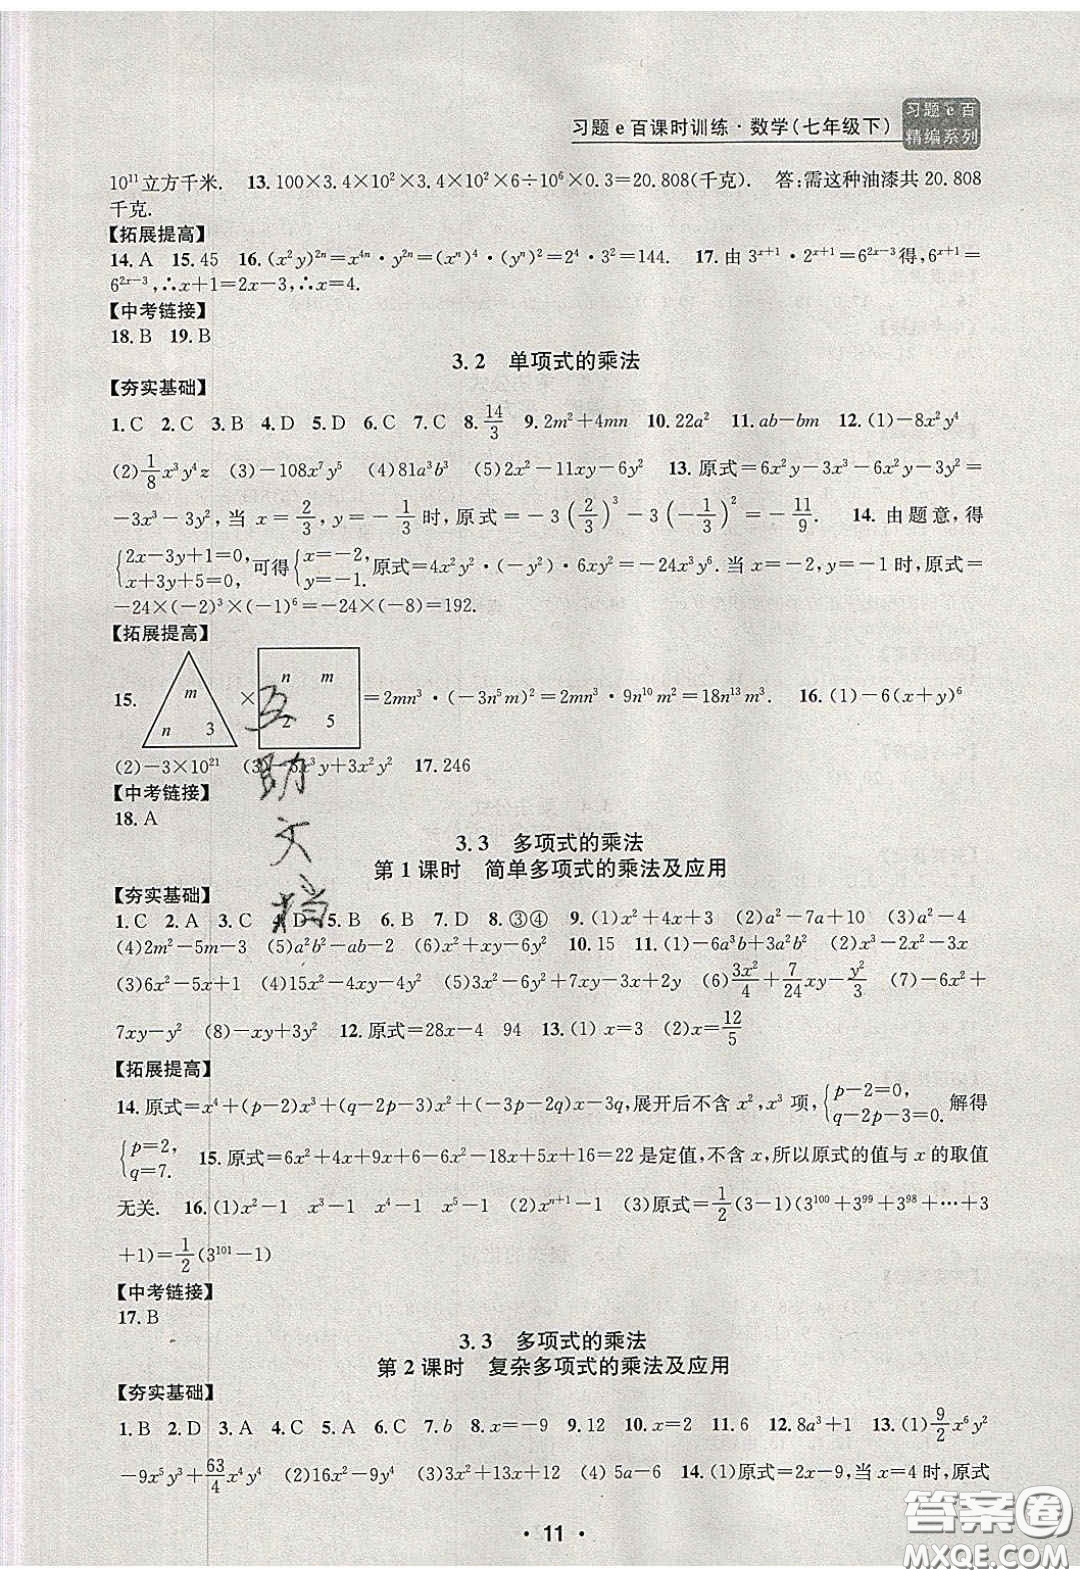 习题e百课时训练·数学(七年级下)
习题e百
精编系列
10¹¹立方千米. 13. 100×3.4×10²×3.4×10²×6÷10⁶×0.3=20.808(千克). 答:需这种油漆共20.808
千克.
【拓展提高】
14. A 15. 45 16. (x²y)²ⁿ=x⁴ⁿ·y²ⁿ=(xⁿ)⁴·(yⁿ)²=2⁴·3²=144. 17. 由3ˣ⁺¹·2ˣ⁺¹=6²ˣ⁻³得,6ˣ⁺¹=
6²ˣ⁻³,∴x+1=2x-3,∴x=4.
【中考链接】
18. B 19. B
3.2 单项式的乘法
【夯实基础】
1. C 2. C 3. B 4. D 5. D 6. C 7. C 8. 14/3 9. 2m²+4mn 10. 22a² 11. ab-bm 12. (1)-8x²y⁴
(2)1/8x³y⁴z (3)-108x⁷y⁵ (4)81a³b³ (5)2x²-11xy-6y² 13. 原式=6x²y-3x³-6x²y-3y²=
-3x³-3y²,当x=2/3,y=-1/3时,原式=-3(2/3)³-3(-1/3)²=-11/9. 14. 由题意,得
{2x-3y+1=0, x+3y+5=0,可得{x=-2, y=-1.原式=4x²y²·(-y²)·6xy²=-24x³y⁶.当x=-2,y=-1时,原式=
-24×(-2)³×(-1)⁶=-24×(-8)=192.
【拓展提高】
15. m n 3 × n m 2 5 =2mn³·(-3n⁵m)²=2mn³·9n¹⁰m²=18n¹³m³. 16. (1)-6(x+y)⁶
(2)-3×10²¹ (3)-6x³y+3x²y² 17. 246
【中考链接】
18. A
互助文档
3.3 多项式的乘法
第1课时 简单多项式的乘法及应用
【夯实基础】
1. C 2. A 3. C 4. D 5. B 6. C 7. D 8. ③④ 9. (1)x²+4x+3 (2)a²-7a+10 (3)a²-4
(4)2m²-5m-3 (5)a²b²-ab-2 (6)x²+xy-6y² 10. 15 11. (1)-6a³b+3a²b² (2)x³-2x²-3x
(3)6x²-5x+1 (4)2x²+4xy-4y (5)2x²-3xy-2y²-3x+2y (6)3x²/4+7/24xy-y²/3 (7)-6x²+
7xy-y² (8)-xy+3y² 12. 原式=28x-4 94 13. (1) x=3 (2)x=12/5
【拓展提高】
14. 原式=x⁴+(p-2)x³+(q-2p-3)x²+(-3p-2q)x-3q,展开后不含x²,x³项,{p-2=0, q-2p-3=0.解得
{p=2, q=7. 15. 原式=6x²+4x+9x+6-6x²-18x+5x+16=22是定值,不含x,所以原式的值与x的取值
无关. 16. (1)x²-1 x³-1 x⁴-1 x⁵-1 (2)xⁿ⁺¹-1 (3)原式=1/2(3-1)(3¹⁰⁰+3⁹⁹+3⁹⁸+…+3
+1)=1/2(3¹⁰¹-1)
【中考链接】
17. B
3.3 多项式的乘法
第2课时 复杂多项式的乘法及应用
【夯实基础】
1. B 2. D 3. A 4. C 5. A 6. C 7. b 8. x=-9 9. 12 10. x=2 11. 6 12. 8a³+1 13. (1)9/2x⁶y²
-9x⁵y³+63/4x⁴y⁴ (2)16x²-9y⁴ (3)-15x²+8xy+12y² (4) 5a-6 14. (1)原式=2x-9,当x=4时,原式
·11·
答案圈
MXQE.COM